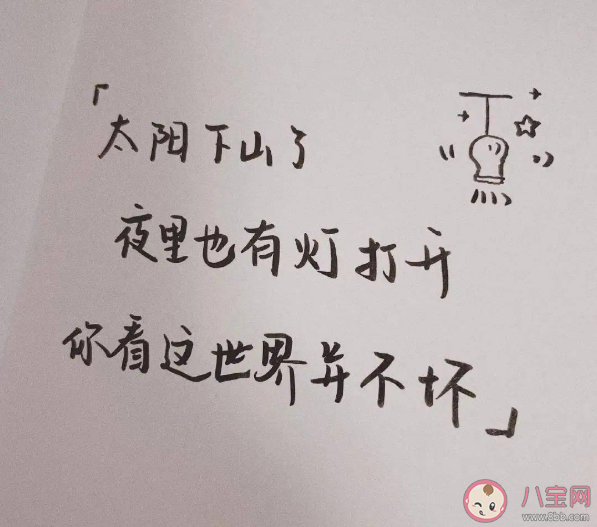 「太阳下山了
夜里也有灯打开
你看这世界并不坏」
八宝网
www.8bb.com